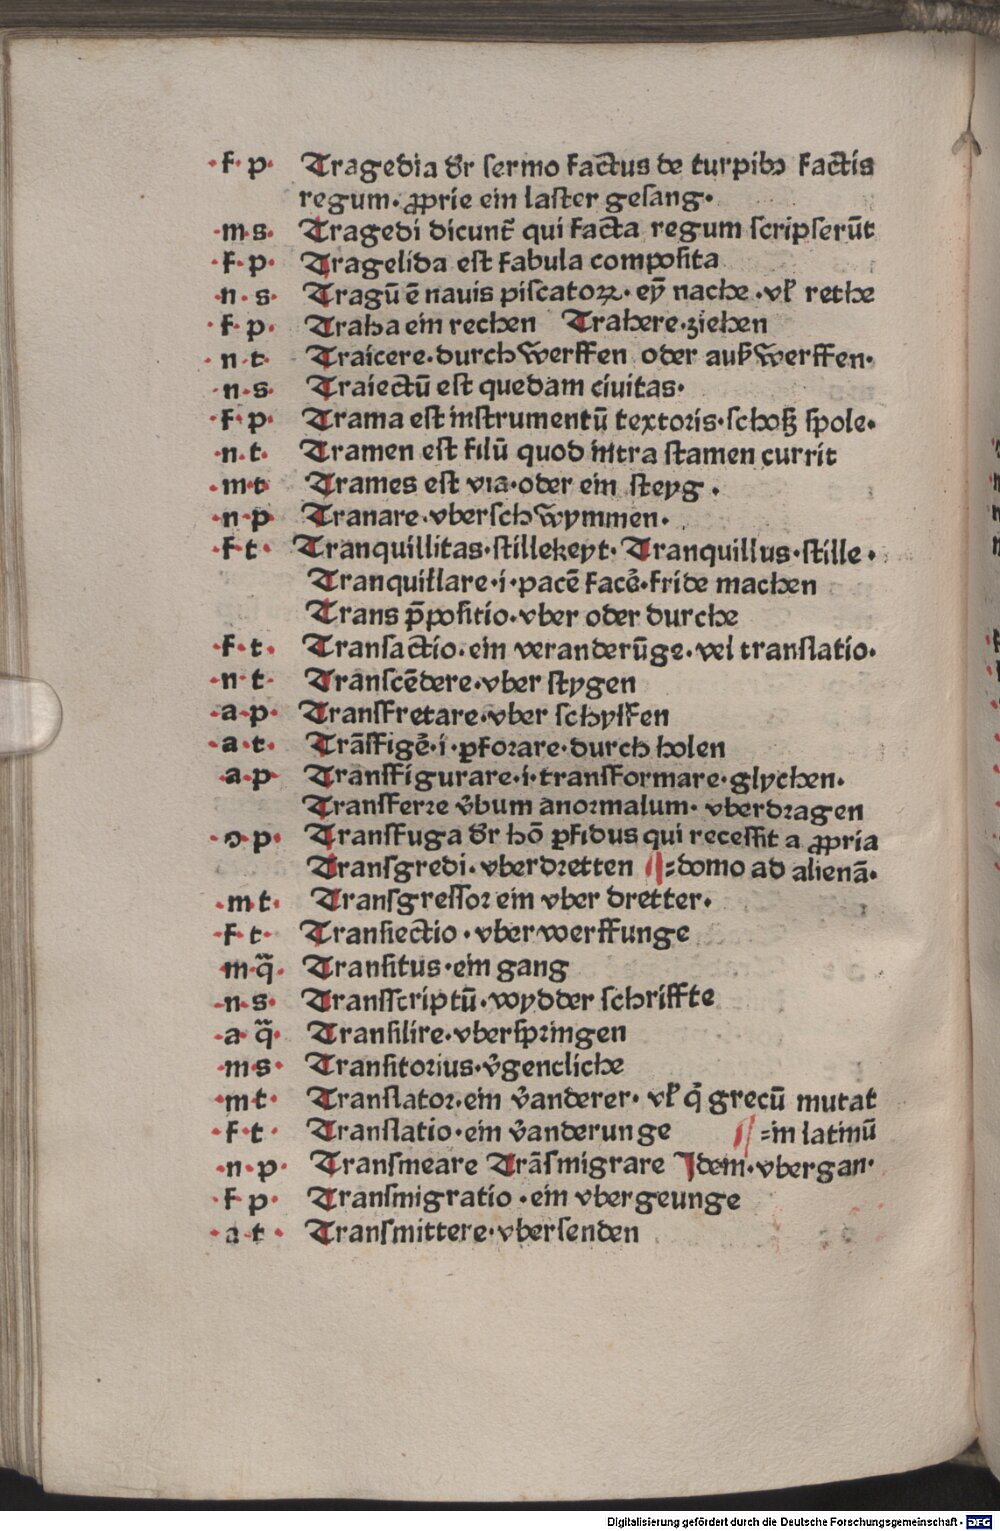 ·f·p· Tragedia dr̄ ſermo factus de turpibꝰ factis
regum. ꝓprie ein laſter geſang·
·m·s· Tragedi dicunt̄ qui facta regum ſcripſerūt
·f·p· Tragelida eſt fabula compoſita
·n·s· Tragū ē nauis piſcatoꝝ· eȳ nache ·vl̓ rethe
·f·p· Traha ein rechen Trahere·ziehen
·n·t· Traicere·durch werffen oder auß werffen·
·n·s· Traiectū eſt quedam ciuitas·
·f·p· Trama eſt inſtrumentū textoꝛis·ſchoß ſpole·
·n·t· Tramen eſt filū quod intra ſtamen currit
·m·t· Trames eſt via·oder ein ſteyg ·
·n·p· Tranare·vberſchwymmen·
·f·t· Tranquillitas·ſtillekeyt· Tranquillus·ſtille·
Tranquillare·i·pacē facē·fride machen
Trans p̄poſitio·vber oder durche
·f·t· Tranſactio·ein veranderūge·vel tranſlatio·
·n·t· Tranſcēdere·vber ſtygen
·a·p· Tranſfretare·vber ſchyffen
·a·t· Trāſfigē·i·ꝑfoꝛare·durch holen
·a·p· Tranſfigurare·i·tranſformare·glychen·
Tranſferre v̄bum anoꝛmalum· vberdꝛagen
·ɔ·p· Tranſfuga dr̄ hō ꝑfidus qui receſſit a ꝓpria
Tranſgredi·vberdꝛetten ¶=domo ad alienā·
·m·t· Tranſgreſſoꝛ ein vber dretter·
·f·t· Tranſiectio·vberwerffunge
·m·q̄· Tranſitus·ein gang
·n·s· Tranſſcriptū·wydder ſchriffte
·a·q̄· Tranſilire·vberſpꝛingen
·m·s· Tranſitoꝛius·v̄gencliche
·m·t· Tranſlatoꝛ·ein v̄anderer· vl̓ q̇ grecū mutat
·f·t· Tranſlatio·ein v̄anderunge ¶=in latinū
·n·p· Tranſmeare Trāſmigrare Idem·vbergan·
·f·p· Tranſmigratio·ein vbergeunge
·a·t· Tranſmittere·vberſenden
Digitalisierung gefördert durch die Deutsche Forschungsgemeinschaft - DFG